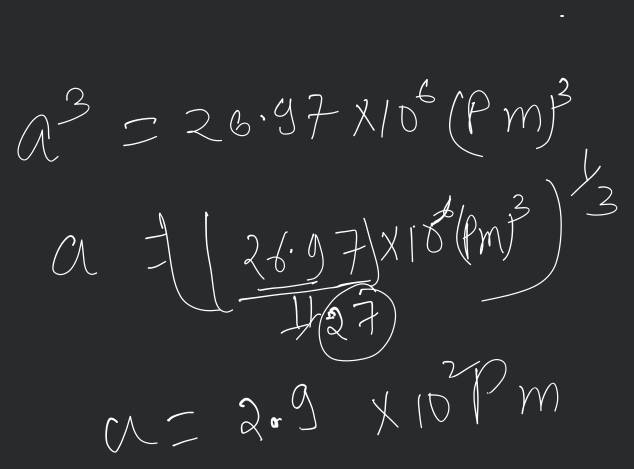 a³ = 26.97 X10⁶ (Pm)³
a = ((26.97)X10⁶(Pm)³)^1/3
27
a = 2.9 X 10² Pm